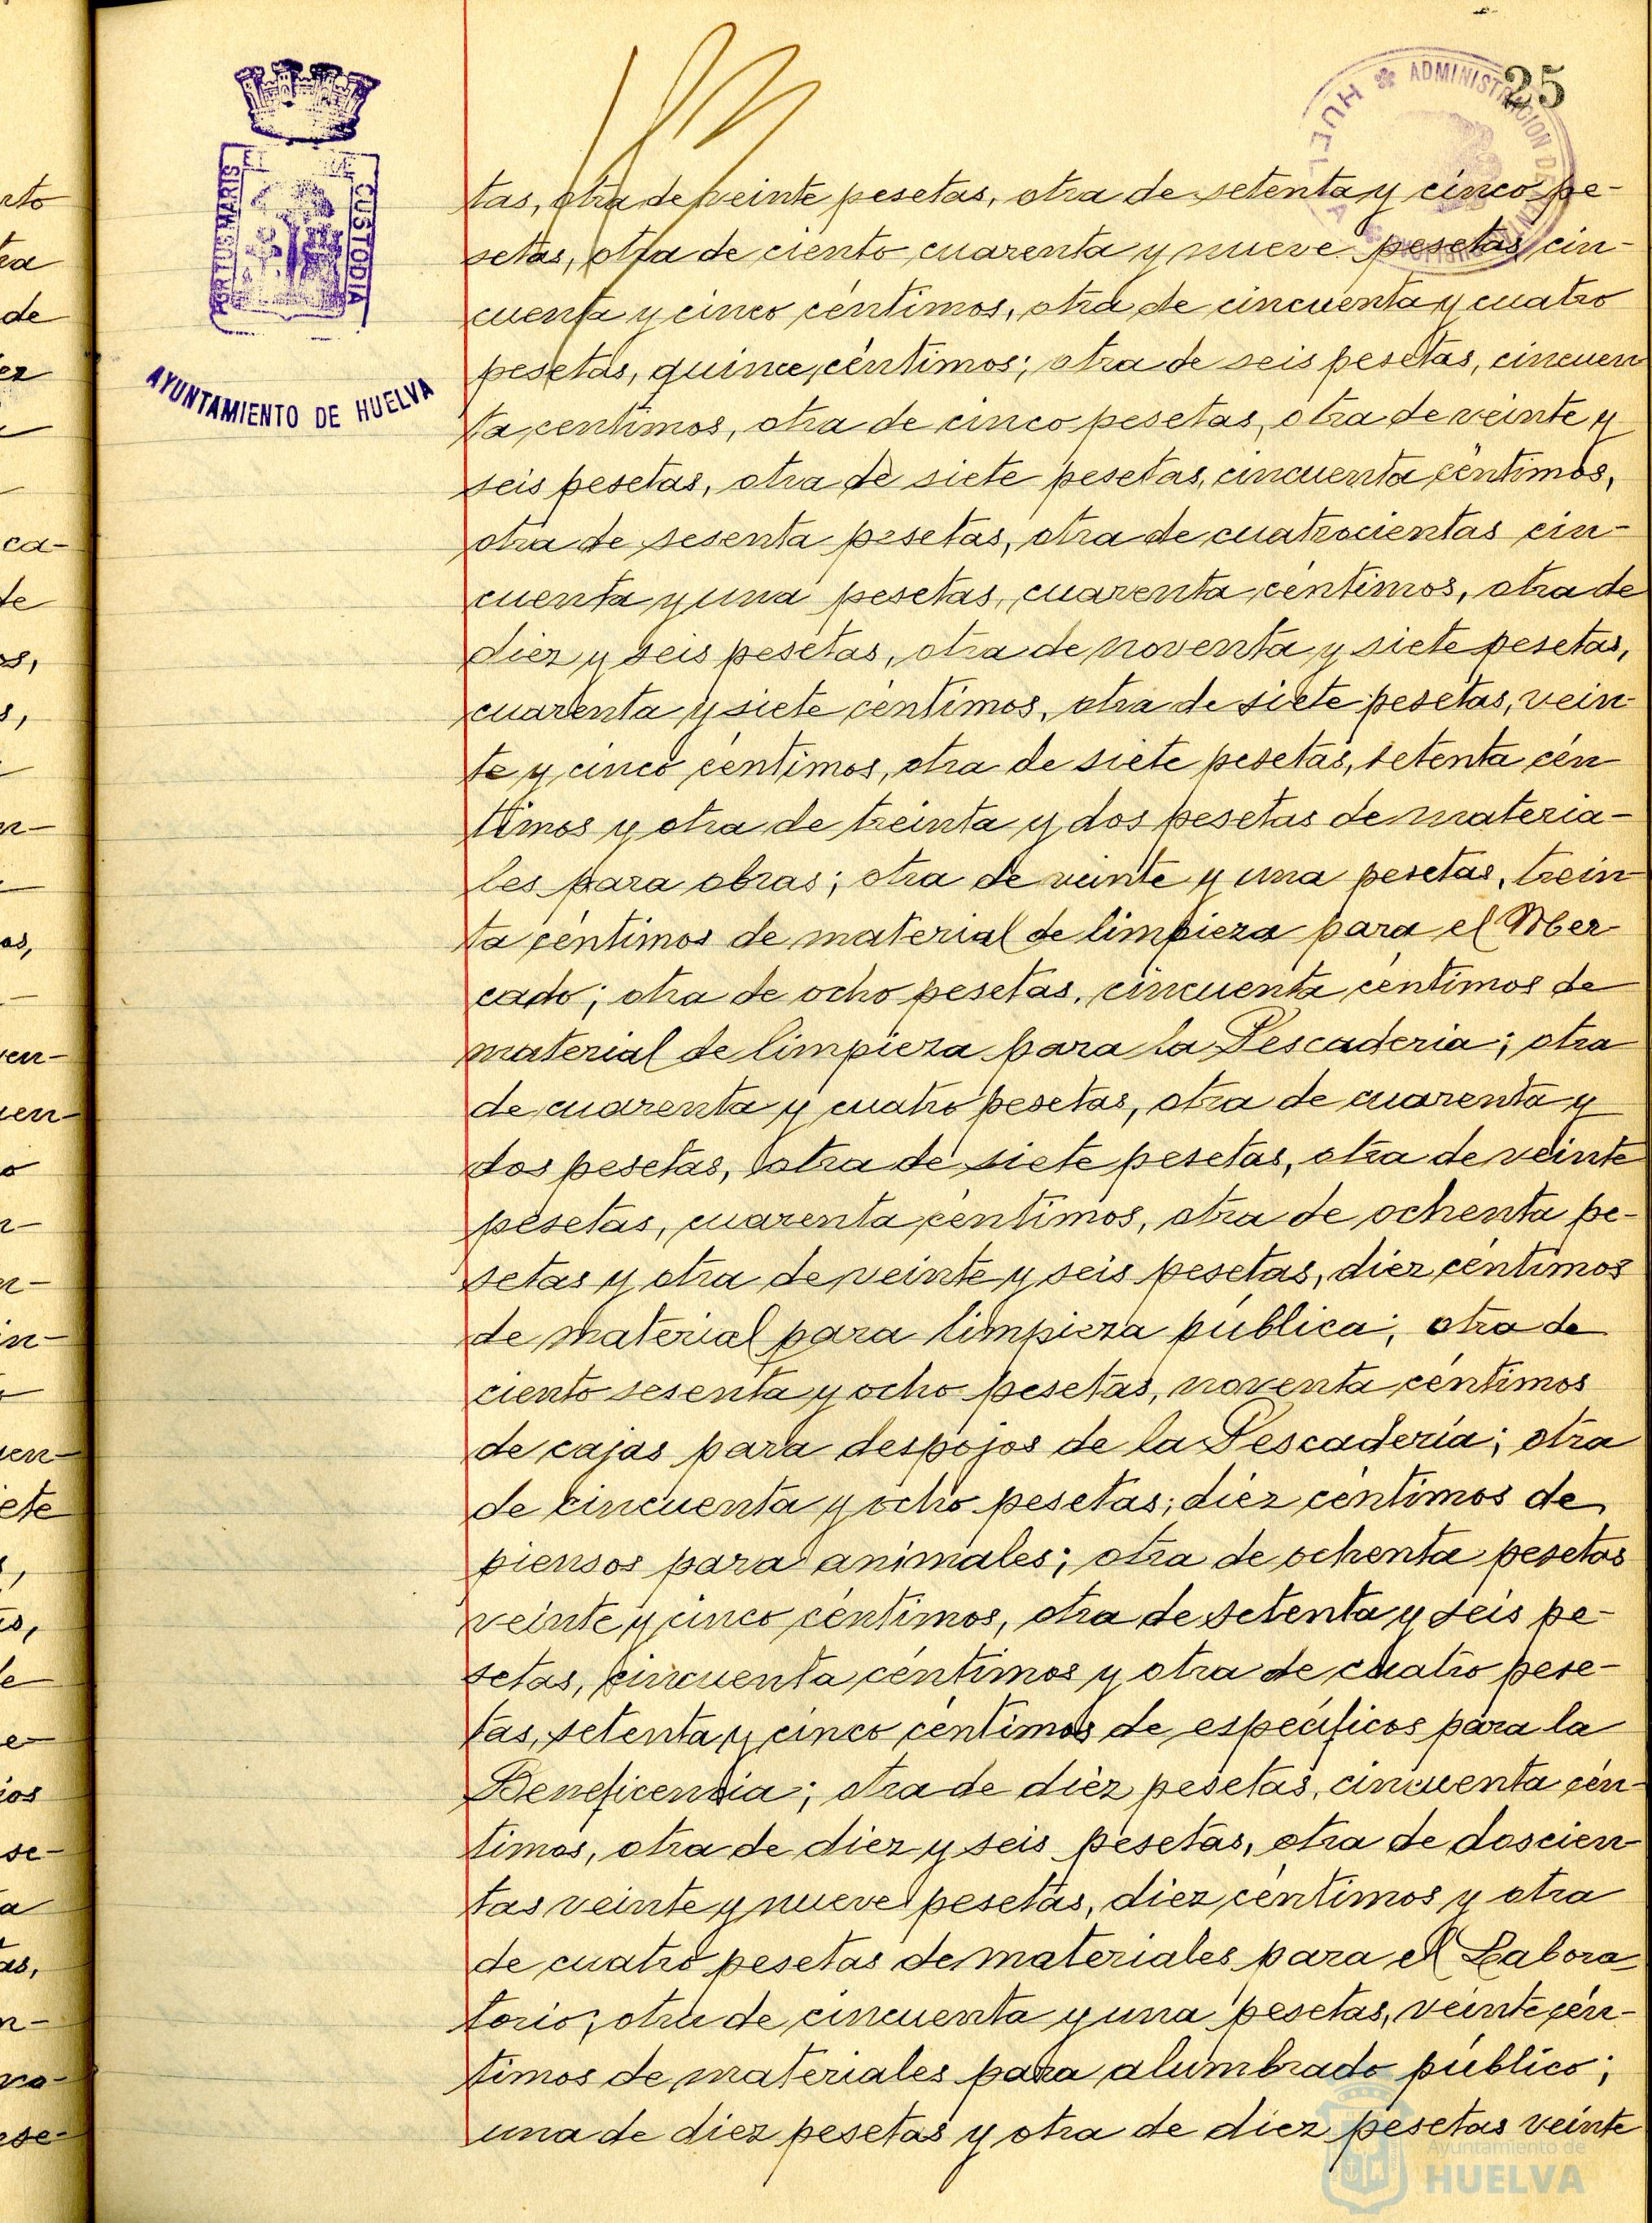 25
ADMINISTRACION DE
HUELVA
PORTUS MARIS
ET
CUSTODIA
AYUNTAMIENTO DE HUELVA
tas, otra de veinte pesetas, otra de setenta y cinco pe-
setas, otra de ciento cuarenta y nueve pesetas cin-
cuenta y cinco céntimos, otra de cincuenta y cuatro
pesetas, quince céntimos; otra de seis pesetas, cincuen
ta centimos, otra de cinco pesetas, otra de veinte y
seis pesetas, otra de siete pesetas, cincuenta céntimos,
otra de sesenta pesetas, otra de cuatrocientas cin-
cuenta y una pesetas, cuarenta céntimos, otra de
diez y seis pesetas, otra de noventa y siete pesetas,
cuarenta y siete céntimos, otra de siete pesetas, vein-
te y cinco céntimos, otra de siete pesetas, setenta cén
timos y otra de treinta y dos pesetas de materia-
les para obras; otra de veinte y una pesetas, trein
ta céntimos de material de limpieza para el Mer
cado; otra de ocho pesetas, cincuenta céntimos de
material de limpieza para la Pescaderia; otra
de cuarenta y cuatro pesetas, otra de cuarenta y
dos pesetas, otra de siete pesetas, otra de veinte
pesetas, cuarenta céntimos, otra de ochenta pe-
setas y otra de veinte y seis pesetas, diez céntimos
de material para limpieza pública; otra de
ciento sesenta y ocho pesetas, noventa céntimos
de cajas para despojos de la Pescadería; otra
de cincuenta y ocho pesetas, diez céntimos de
piensos para animales; otra de ochenta pesetas
veinte y cinco céntimos, otra de setenta y seis pe-
setas, cincuenta céntimos y otra de cuatro pese-
tas, setenta y cinco céntimos de específicos para la
Beneficencia; otra de diez pesetas, cincuenta cén-
timos, otra de diez y seis pesetas, otra de doscien-
tas veinte y nueve pesetas, diez céntimos y otra
de cuatro pesetas de materiales para el Labora
torio; otra de cincuenta y una pesetas, veinte cén-
timos de materiales para alumbrado público;
una de diez pesetas y otra de diez pesetas veinte
Ayuntamiento de
HUELVA